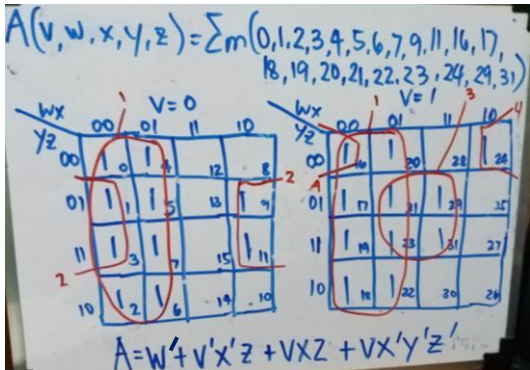 A(v,w,x,y,z) = Σm(0,1,2,3,4,5,6,7,9,11,16,17,
18,19,20,21,22,23,24,29,31)
1 V=0 WX YZ 00 01 11 10
00 1 0 1 4 12 8
01 1 1 1 5 13 1 9 2
11 1 3 1 7 15 1 11
2
10 1 2 1 6 14 10
1 V=1 3 4 WX YZ 00 01 11 10
00 1 16 1 20 28 1 24
4
01 1 17 1 21 1 29 25
11 1 19 1 23 1 31 27
10 1 18 1 22 30 26
A=W'+V'X'Z+VXZ+VX'Y'Z'